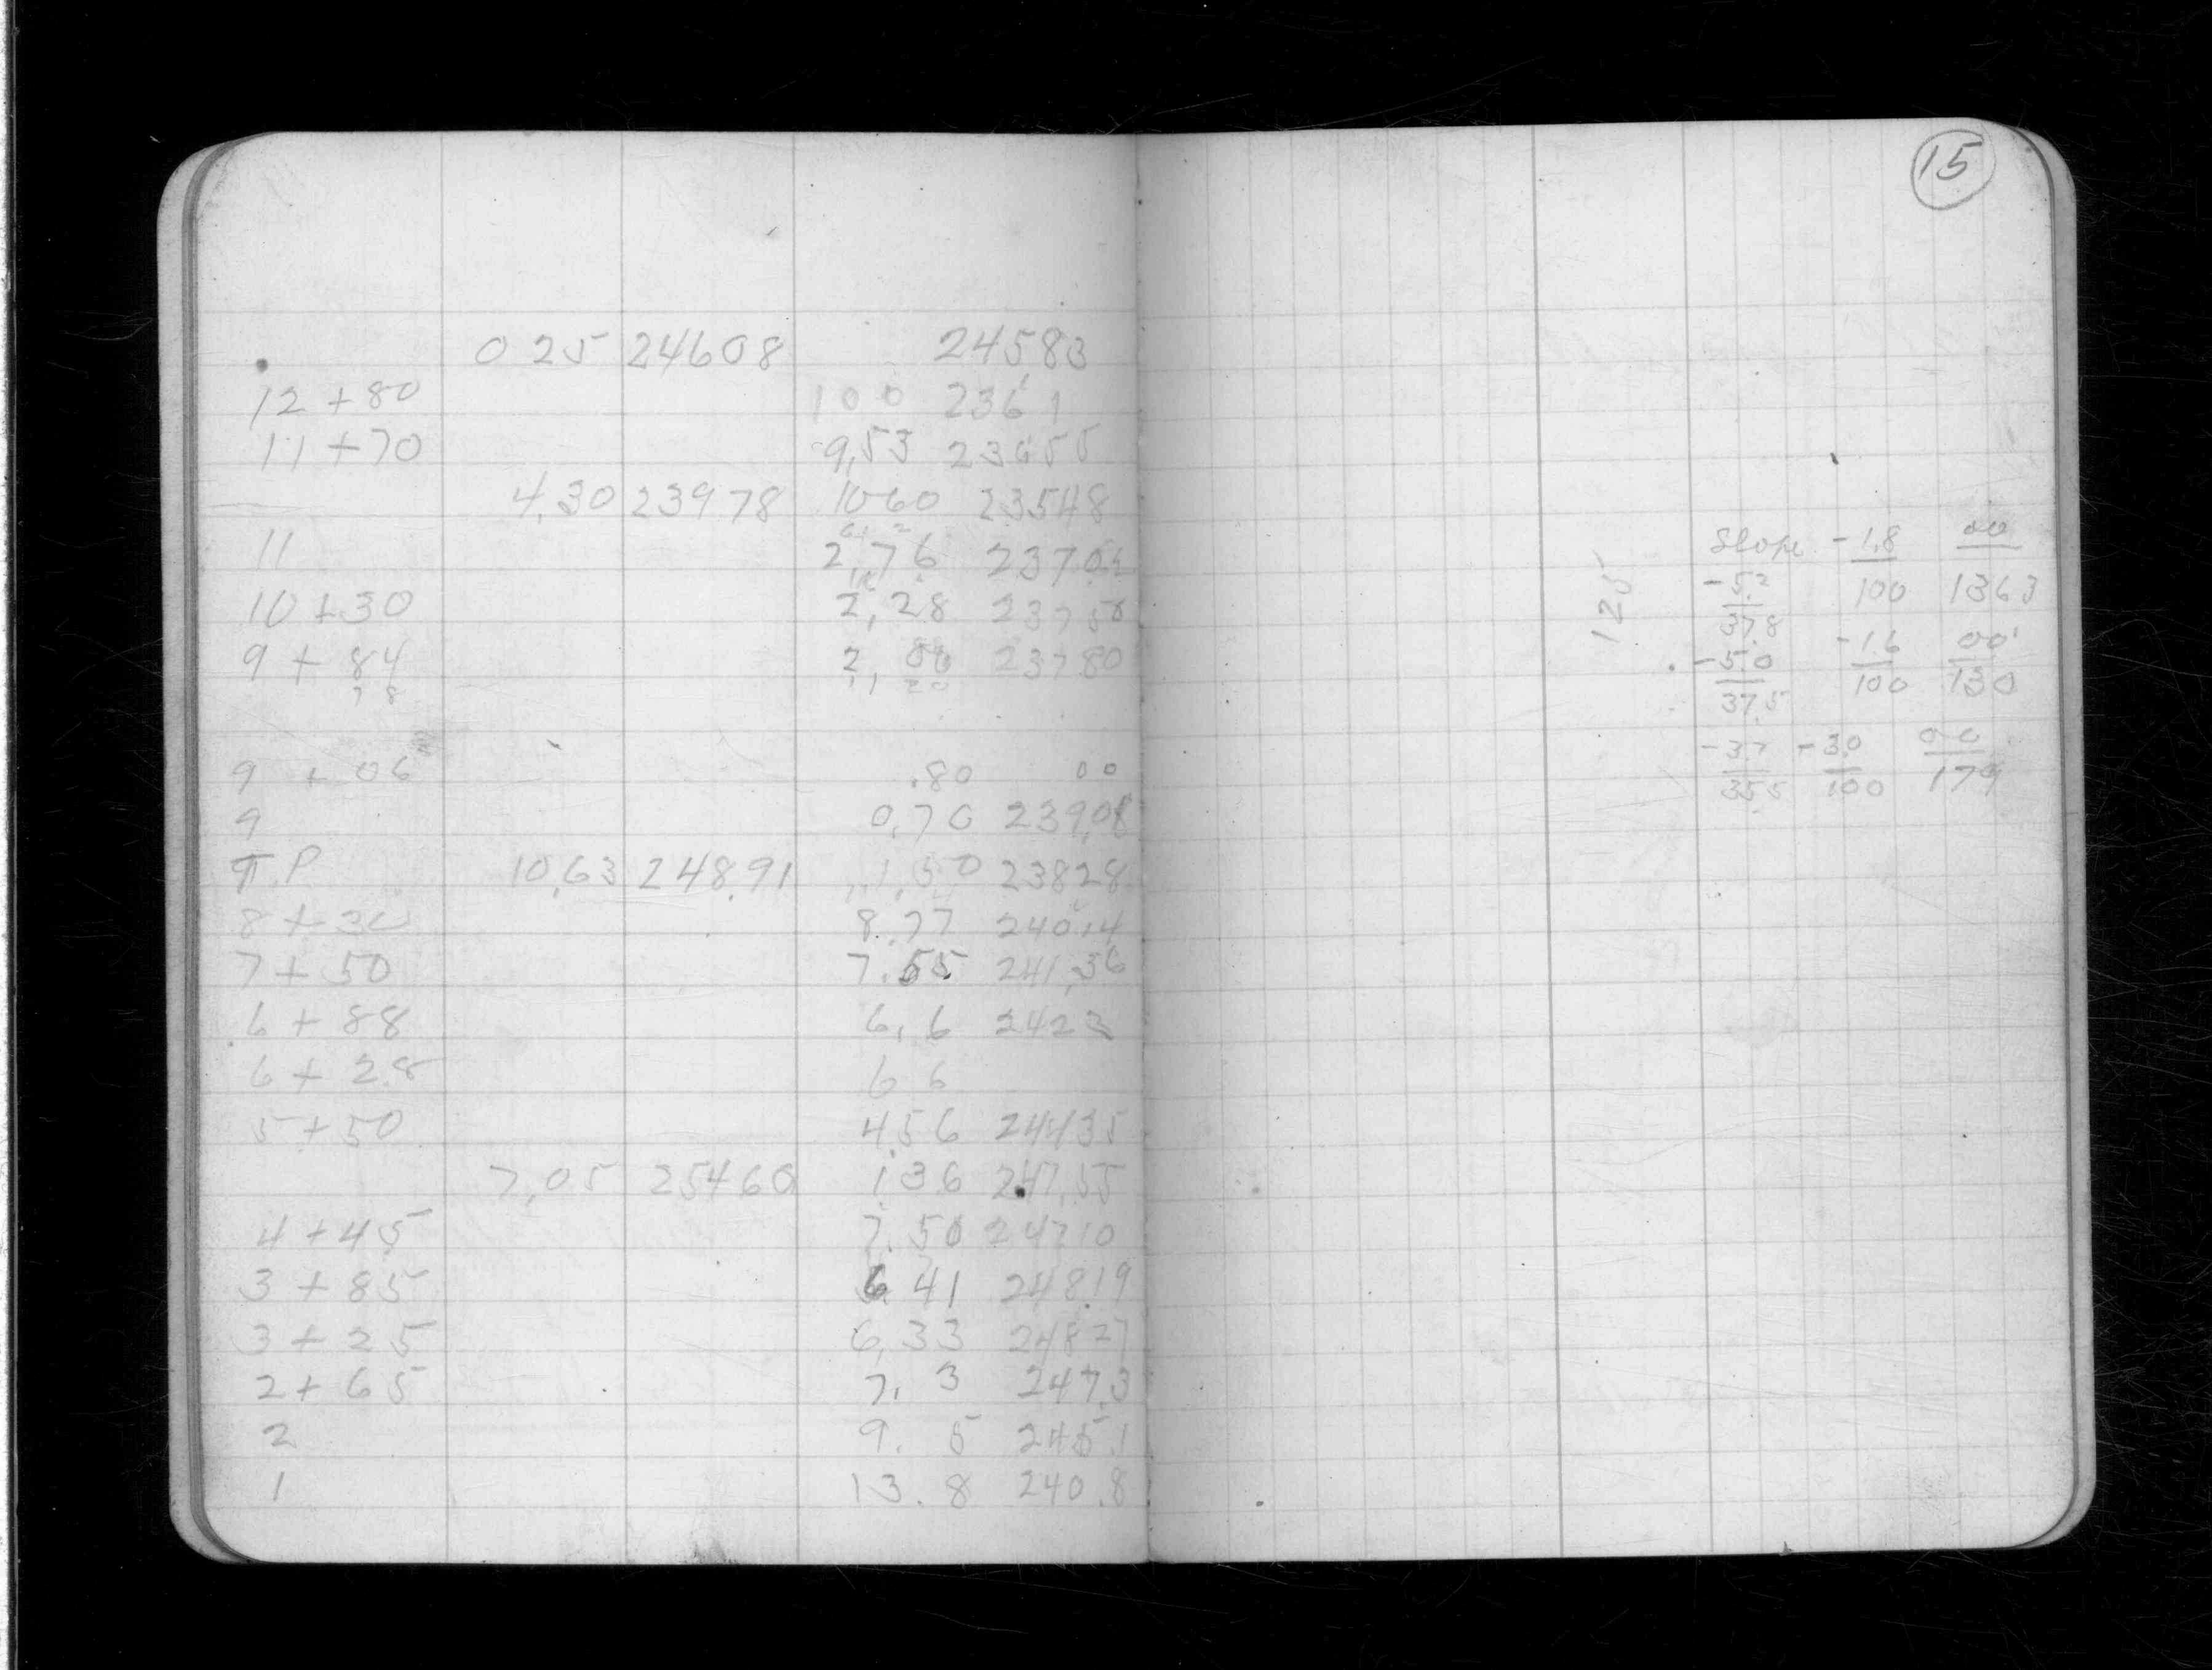 15
0 25 24608 24583
12 + 80 100 2361
11 + 70 9,53 23655
4,30 23978 1060 23548
11 2,76 2370
10 + 30 2,28 237
9 + 84 2, 23780
78 20
9 + 06 .80 00
9 0,70 239,08
T.P 10,63 248.91 1,50 23828
8 + 30 8.77 24014
7 + 50 7.55 241,36
6 + 88 6,6 2423
6 + 28 6 6
5 + 50 4,56 24435
7,05 25460 1,36 247,55
4 + 45 7.50 24710
3 + 85 6 41 24819
3 + 25 6,33 24827
2 + 65 7, 3 247,3
2 9. 5 245.1
1 13. 8 240.8
125
Slope -1.8 00
-5.2 100 1363
37.8 -1.6 00
-5.0 100 130
37.5
-3.7 -3.0 00
35.5 100 179